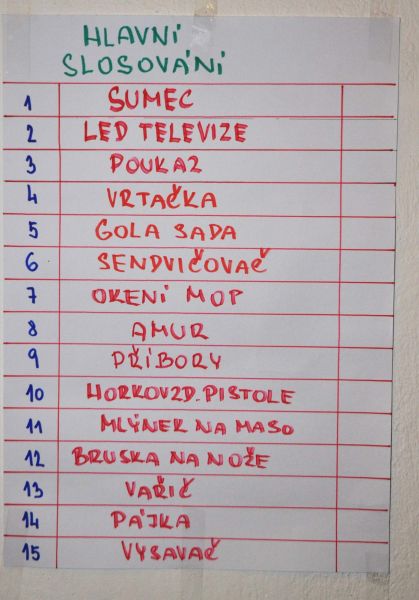 HLAVNÍ
SLOSOVÁNÍ
1 SUMEC
2 LED TELEVIZE
3 POUKAZ
4 VRTAČKA
5 GOLA SADA
6 SENDVIČOVAČ
7 OKENÍ MOP
8 AMUR
9 PŘÍBORY
10 HORKOVZD. PISTOLE
11 MLÝNEK NA MASO
12 BRUSKA NA NOŽE
13 VAŘIČ
14 PÁJKA
15 VYSAVAČ